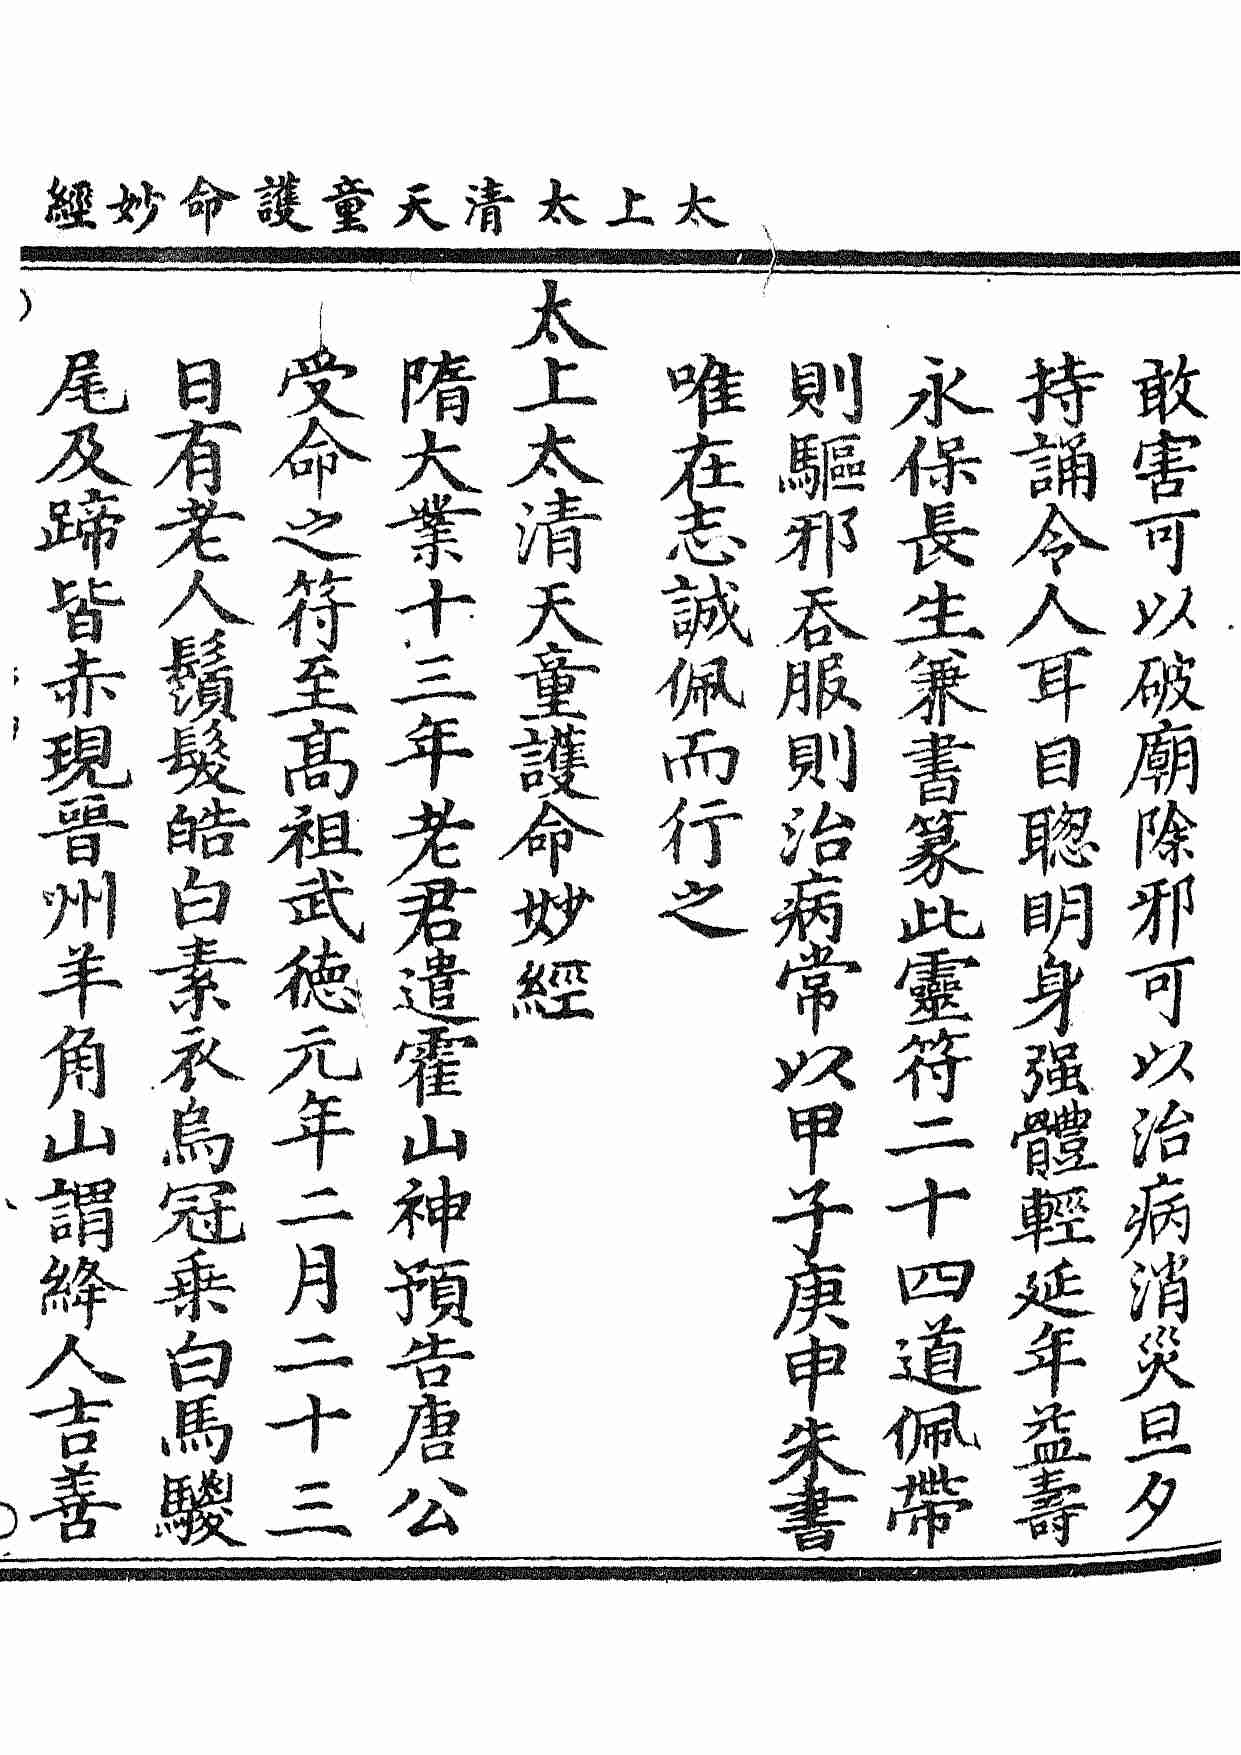 太上太清天童護命妙經
敢害可以破廟除邪可以治病消災旦夕
持誦令人耳目聰明身强體輕延年益壽
永保長生兼書篆此靈符二十四道佩帶
則驅邪吞服則治病常以甲子庚申朱書
唯在志誠佩而行之
太上太清天童護命妙經
隋大業十三年老君遣霍山神預告唐公
受命之符至髙祖武德元年二月二十三
日有老人鬚髮皓白素衣烏冠乗白馬騣
尾及蹄皆赤現晉州羊角山謂絳人吉善